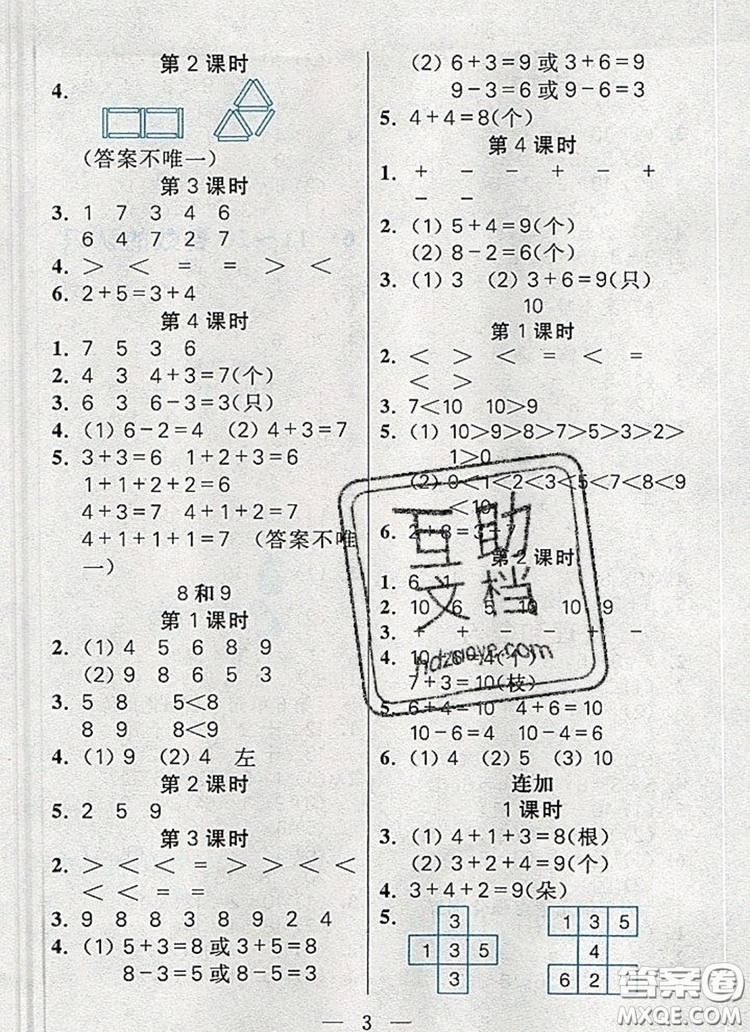 第2课时
4.
(答案不唯一)
第3课时
3. 1 7 3 4 6
6 4 7 2 7
4. > < < = = > <
6. 2+5=3+4
第4课时
1. 7 5 3 6
2. 4 3 4+3=7(个)
3. 6 3 6-3=3(只)
4. (1) 6-2=4 (2) 4+3=7
5. 3+3=6 1+2+3=6
1+1+2+2=6
4+3=7 4+1+2=7
4+1+1+1=7 (答案不唯
一)
8和9
第1课时
2. (1) 4 5 6 8 9
(2) 9 8 6 5 3
3. 5 8 5<8
8 9 8<9
4. (1) 9 (2) 4 左
第2课时
5. 2 5 9
第3课时
2. > < < = > > < <
< < = =
3. 9 8 8 3 8 9 2 4
4. (1) 5+3=8或3+5=8
8-3=5或8-5=3
(2) 6+3=9或3+6=9
9-3=6或9-6=3
5. 4+4=8(个)
第4课时
1. + - + - + -
- -
2. (1) 5+4=9(个)
(2) 8-2=6(个)
3. (1) 3 (2) 3+6=9(只)
10
第1课时
2. < > < = < =
< >
3. 7<10 10>9
5. (1) 10>9>8>7>5>3>2>
1>0
(2) 0<1<2<3<5<7<8<9
<10
6. 2 8 3
第2课时
1. 6
2. 10 6 5 10 10 9
3. + + - - + -
4. 10-6=4(个)
7+3=10(枝)
5. 6+4=10 4+6=10
10-6=4 10-4=6
6. (1) 4 (2) 5 (3) 10
连加
1课时
3. (1) 4+1+3=8(根)
(2) 3+2+4=9(个)
4. 3+4+2=9(朵)
5. 3
1 3 5
3
1 3 5
4
6 2
— 3 —
互助
文档
hdzuoye.com
答案圈
MXQE.COM